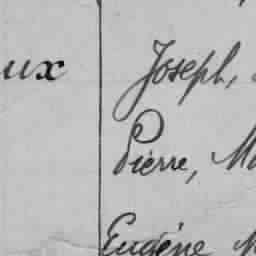 ux Joseph,
Pierre, Ma
Eugène